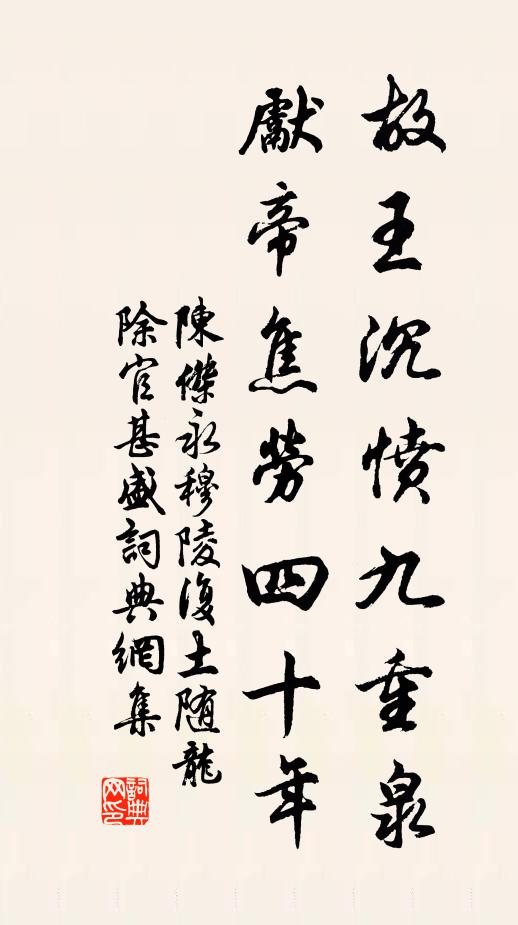 故王沉憤九重泉
獻帝焦勞四十年
陳傑永穆陵復土随龍
除官甚盛詞典網集
詞典
网印